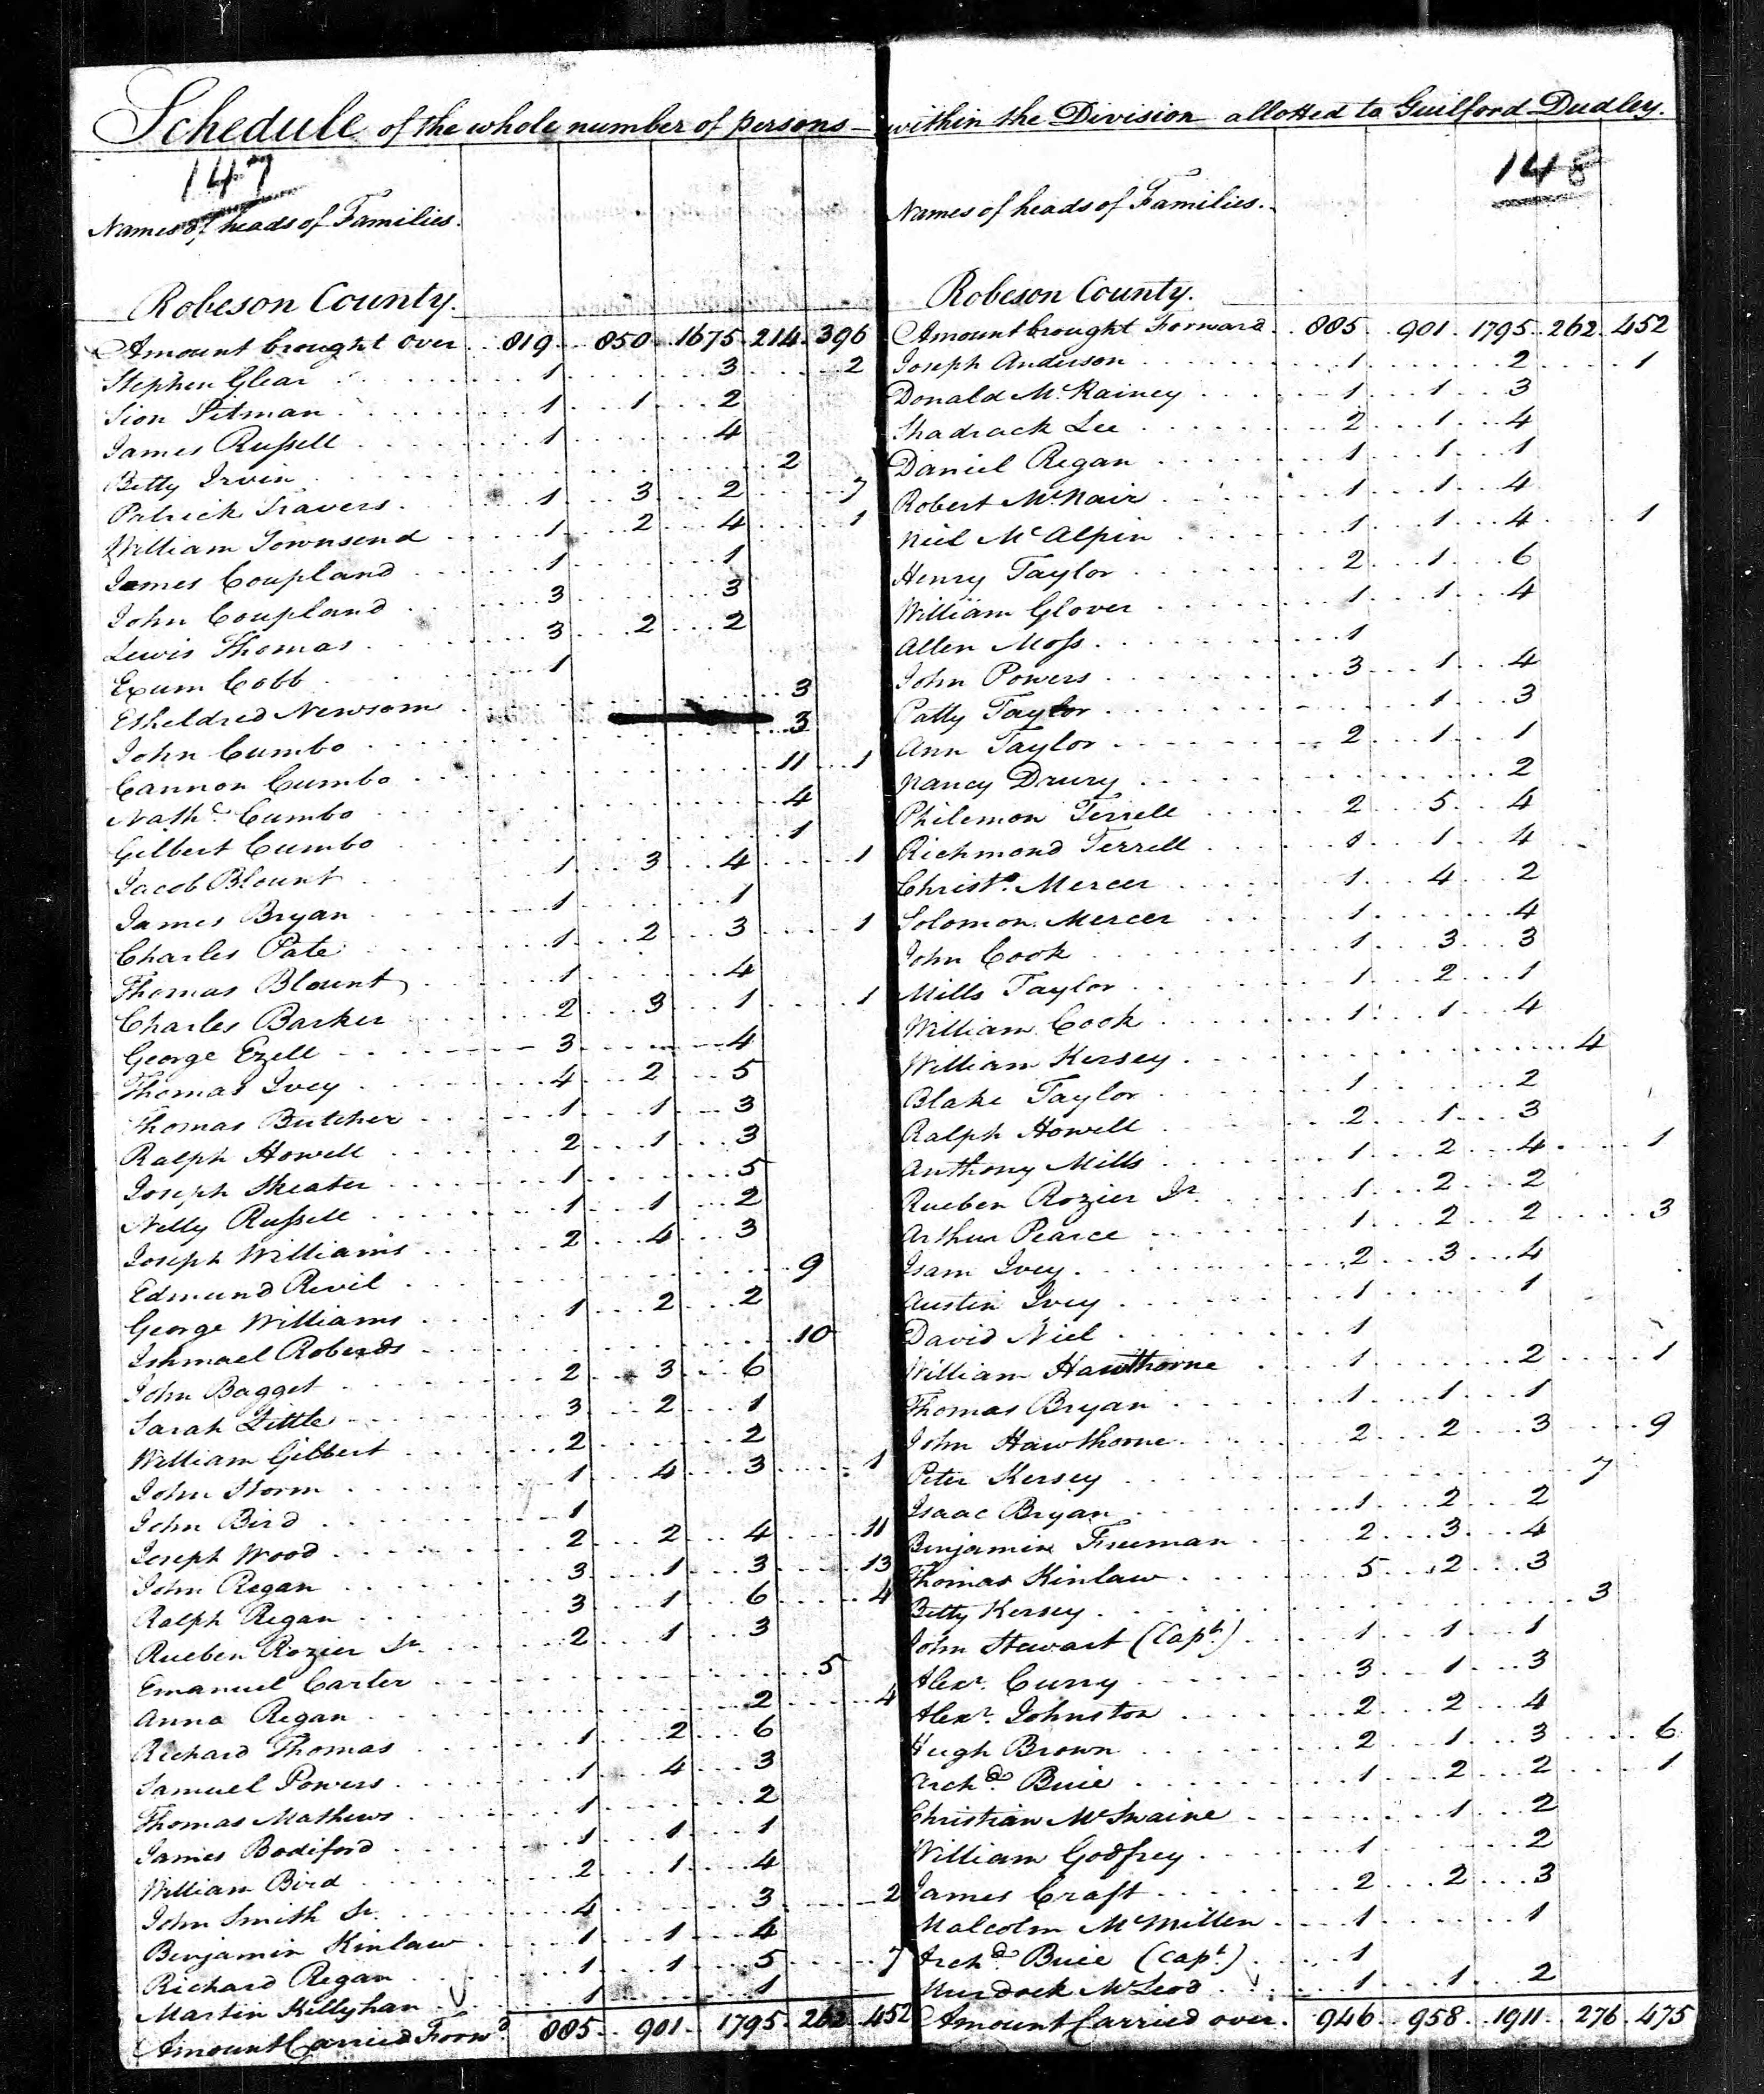 Schedule of the whole number of persons within the Division allotted to Guilford Dudley.
147
Names of heads of Families.
Robeson County.
Amount brought over 819 850 1675 214 396
Stephen Glear 1 3 2
Sion Pitman 1 1 2
James Russell 1 4
Betty Irvin 2
Patrick Travers 1 3 2 7
William Townsend 1 2 4 1
James Coupland 1 1
John Coupland 3 3
Lewis Thomas 3 2 2
Exum Cobb 1
Etheldred Newsom 3
John Cumbo 3
Cannon Cumbo 11 1
Nathl. Cumbo 4
Gilbert Cumbo 1
Jacob Blount 1 3 4 1
James Bryan 1 1
Charles Pate 1 2 3 1
Thomas Blount 1 4
Charles Barker 2 3 1 1
George Ezell 3 4
Thomas Ivey 4 2 5
Thomas Butcher 1 1 3
Ralph Howell 2 1 3
Joseph Skeater 1 5
Nelly Russell 1 1 2
Joseph Williams 2 4 3
Edmund Revil 9
George Williams 1 2 2
Ishmael Roberds 10
John Bagget 2 3 6
Sarah Little 3 2 1
William Gilbert 2 2
John Storm 1 4 3 1
John Bird 1
Joseph Wood 2 2 4 11
John Regan 3 1 3 13
Ralph Regan 3 1 6 4
Rueben Rozier Sr. 2 1 3
Emanuel Carter 5
Anna Regan 2 4
Richard Thomas 1 2 6
Samuel Powers 1 4 3
Thomas Mathews 1 2
James Bodiford 1 1 1
William Bird 2 1 4
John Smith Sr. 4 3 2
Benjamin Kinlaw 1 1 4
Richard Regan 1 1 5 7
Martin Killyhan 1 1
Amount Carried Forwd. 885 901 1795 262 452
148
Names of heads of Families.
Robeson County.
Amount brought Forward 885 901 1795 262 452
Joseph Anderson 1 2 1
Donald McRainey 1 1 3
Shadrack Lee 2 1 4
Daniel Regan 1 1 1
Robert McNair 1 1 4
Niel McAlpin 1 1 4 1
Henry Taylor 2 1 6
William Glover 1 1 4
Allen Moss 1
John Powers 3 1 4
Patty Taylor 1 3
Ann Taylor 2 1 1
Nancy Drury 2
Philemon Terrell 2 5 4
Richmond Terrell 1 1 4
Christo. Mercer 1 4 2
Solomon Mercer 1 4
John Cook 1 3 3
Mills Taylor 1 2 1
William Cook 1 1 4
William Kersey 4
Blake Taylor 1 2
Ralph Howell 2 1 3
Anthony Mills 1 2 4 1
Rueben Rozier Jr. 1 2 2
Arthur Pearce 1 2 2 3
Isam Ivey 2 3 4
Austin Ivey 1 1
David Niel 1
William Hawthorne 1 2 1
Thomas Bryan 1 1 1
John Hawthorne 2 2 3 9
Peter Kersey 7
Isaac Bryan 1 2 2
Benjamin Freeman 2 3 4
Thomas Kinlaw 5 2 3
Betty Kersey 3
John Stewart (Capt.) 1 1 1
Alexr. Curry 3 1 3
Alexr. Johnston 2 2 4
Hugh Brown 2 1 3 6
Archd. Buie 1 2 2 1
Christian McSwaine 1 2
William Godfrey 1 2
James Craft 2 2 3
Malcolm McMillen 1 1
Archd. Buie (Capt.) 1
Murdock McLeod 1 1 2
Amount Carried over 946 958 1911 276 475